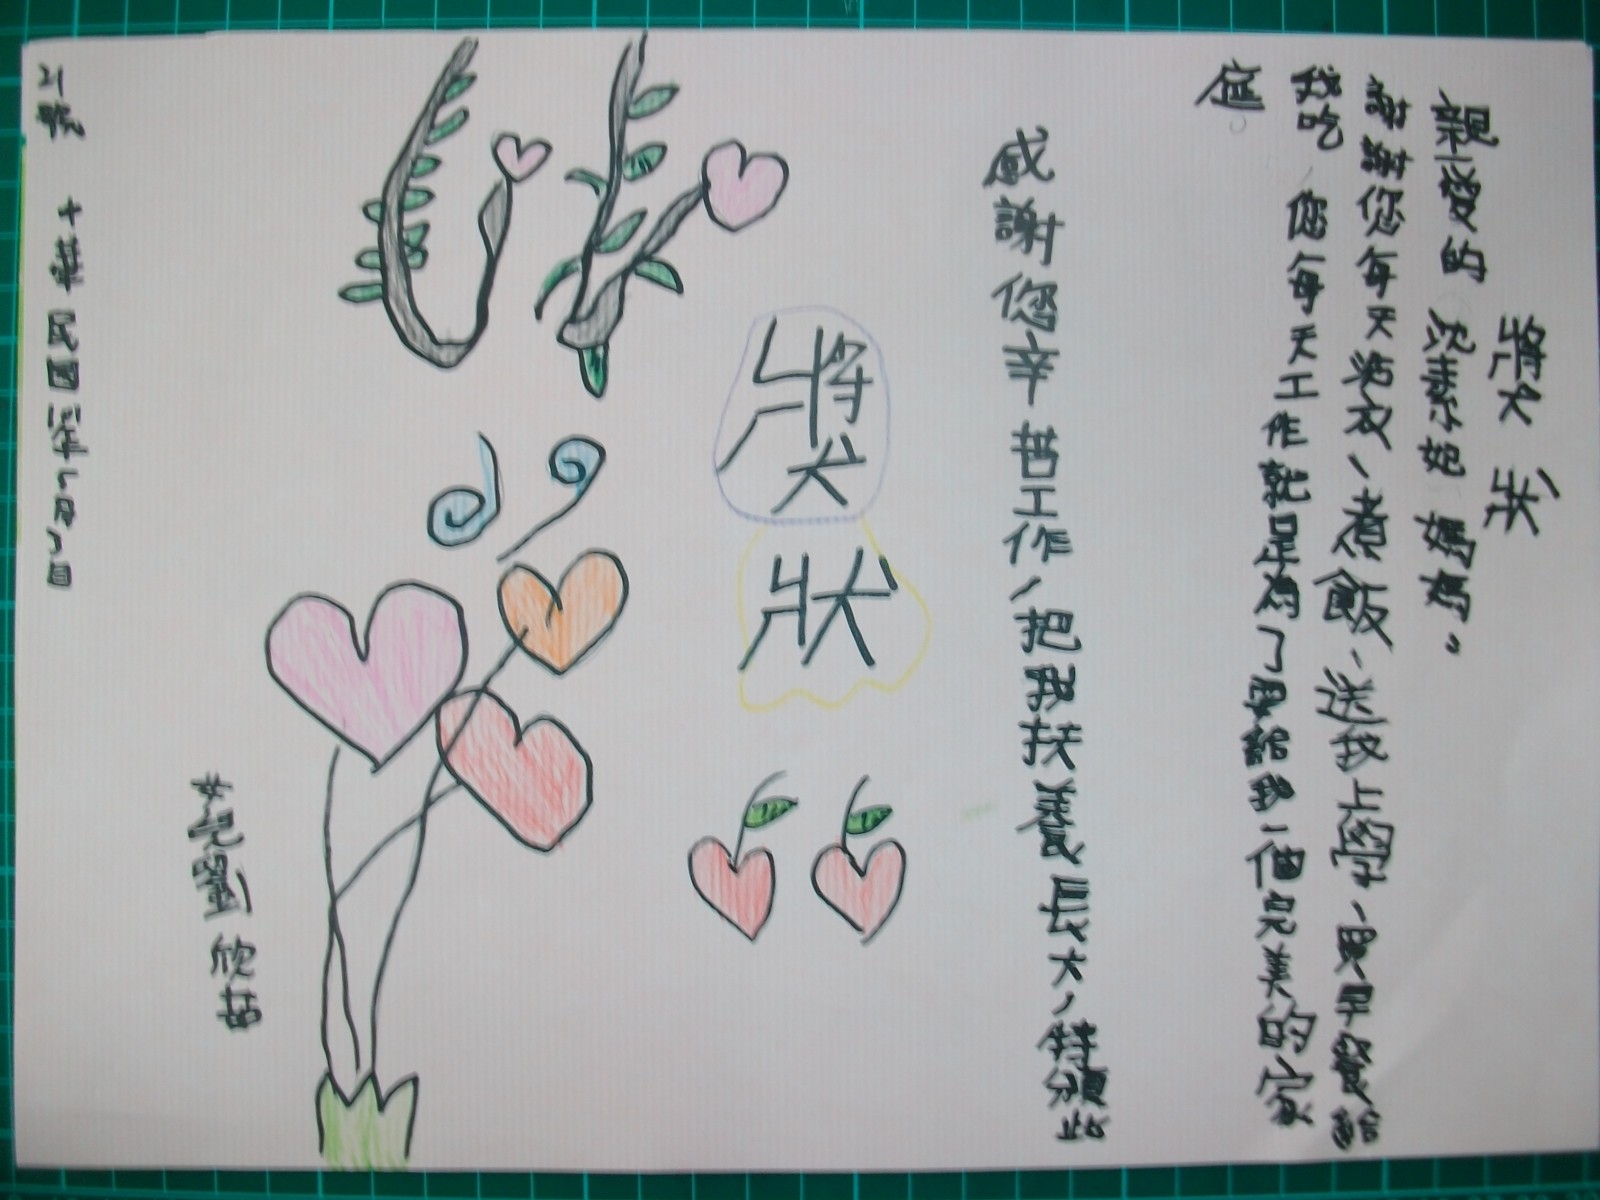 獎狀
親愛的 沈素妃 媽媽。
謝謝您每天洗衣、煮飯、送我上學、買早餐給
我吃 您每天工作就是為了要給我一個完美的家
庭。
感謝您辛苦工作、把我扶養長大，特頒此
獎狀
女兒劉欣茹
民國
21號